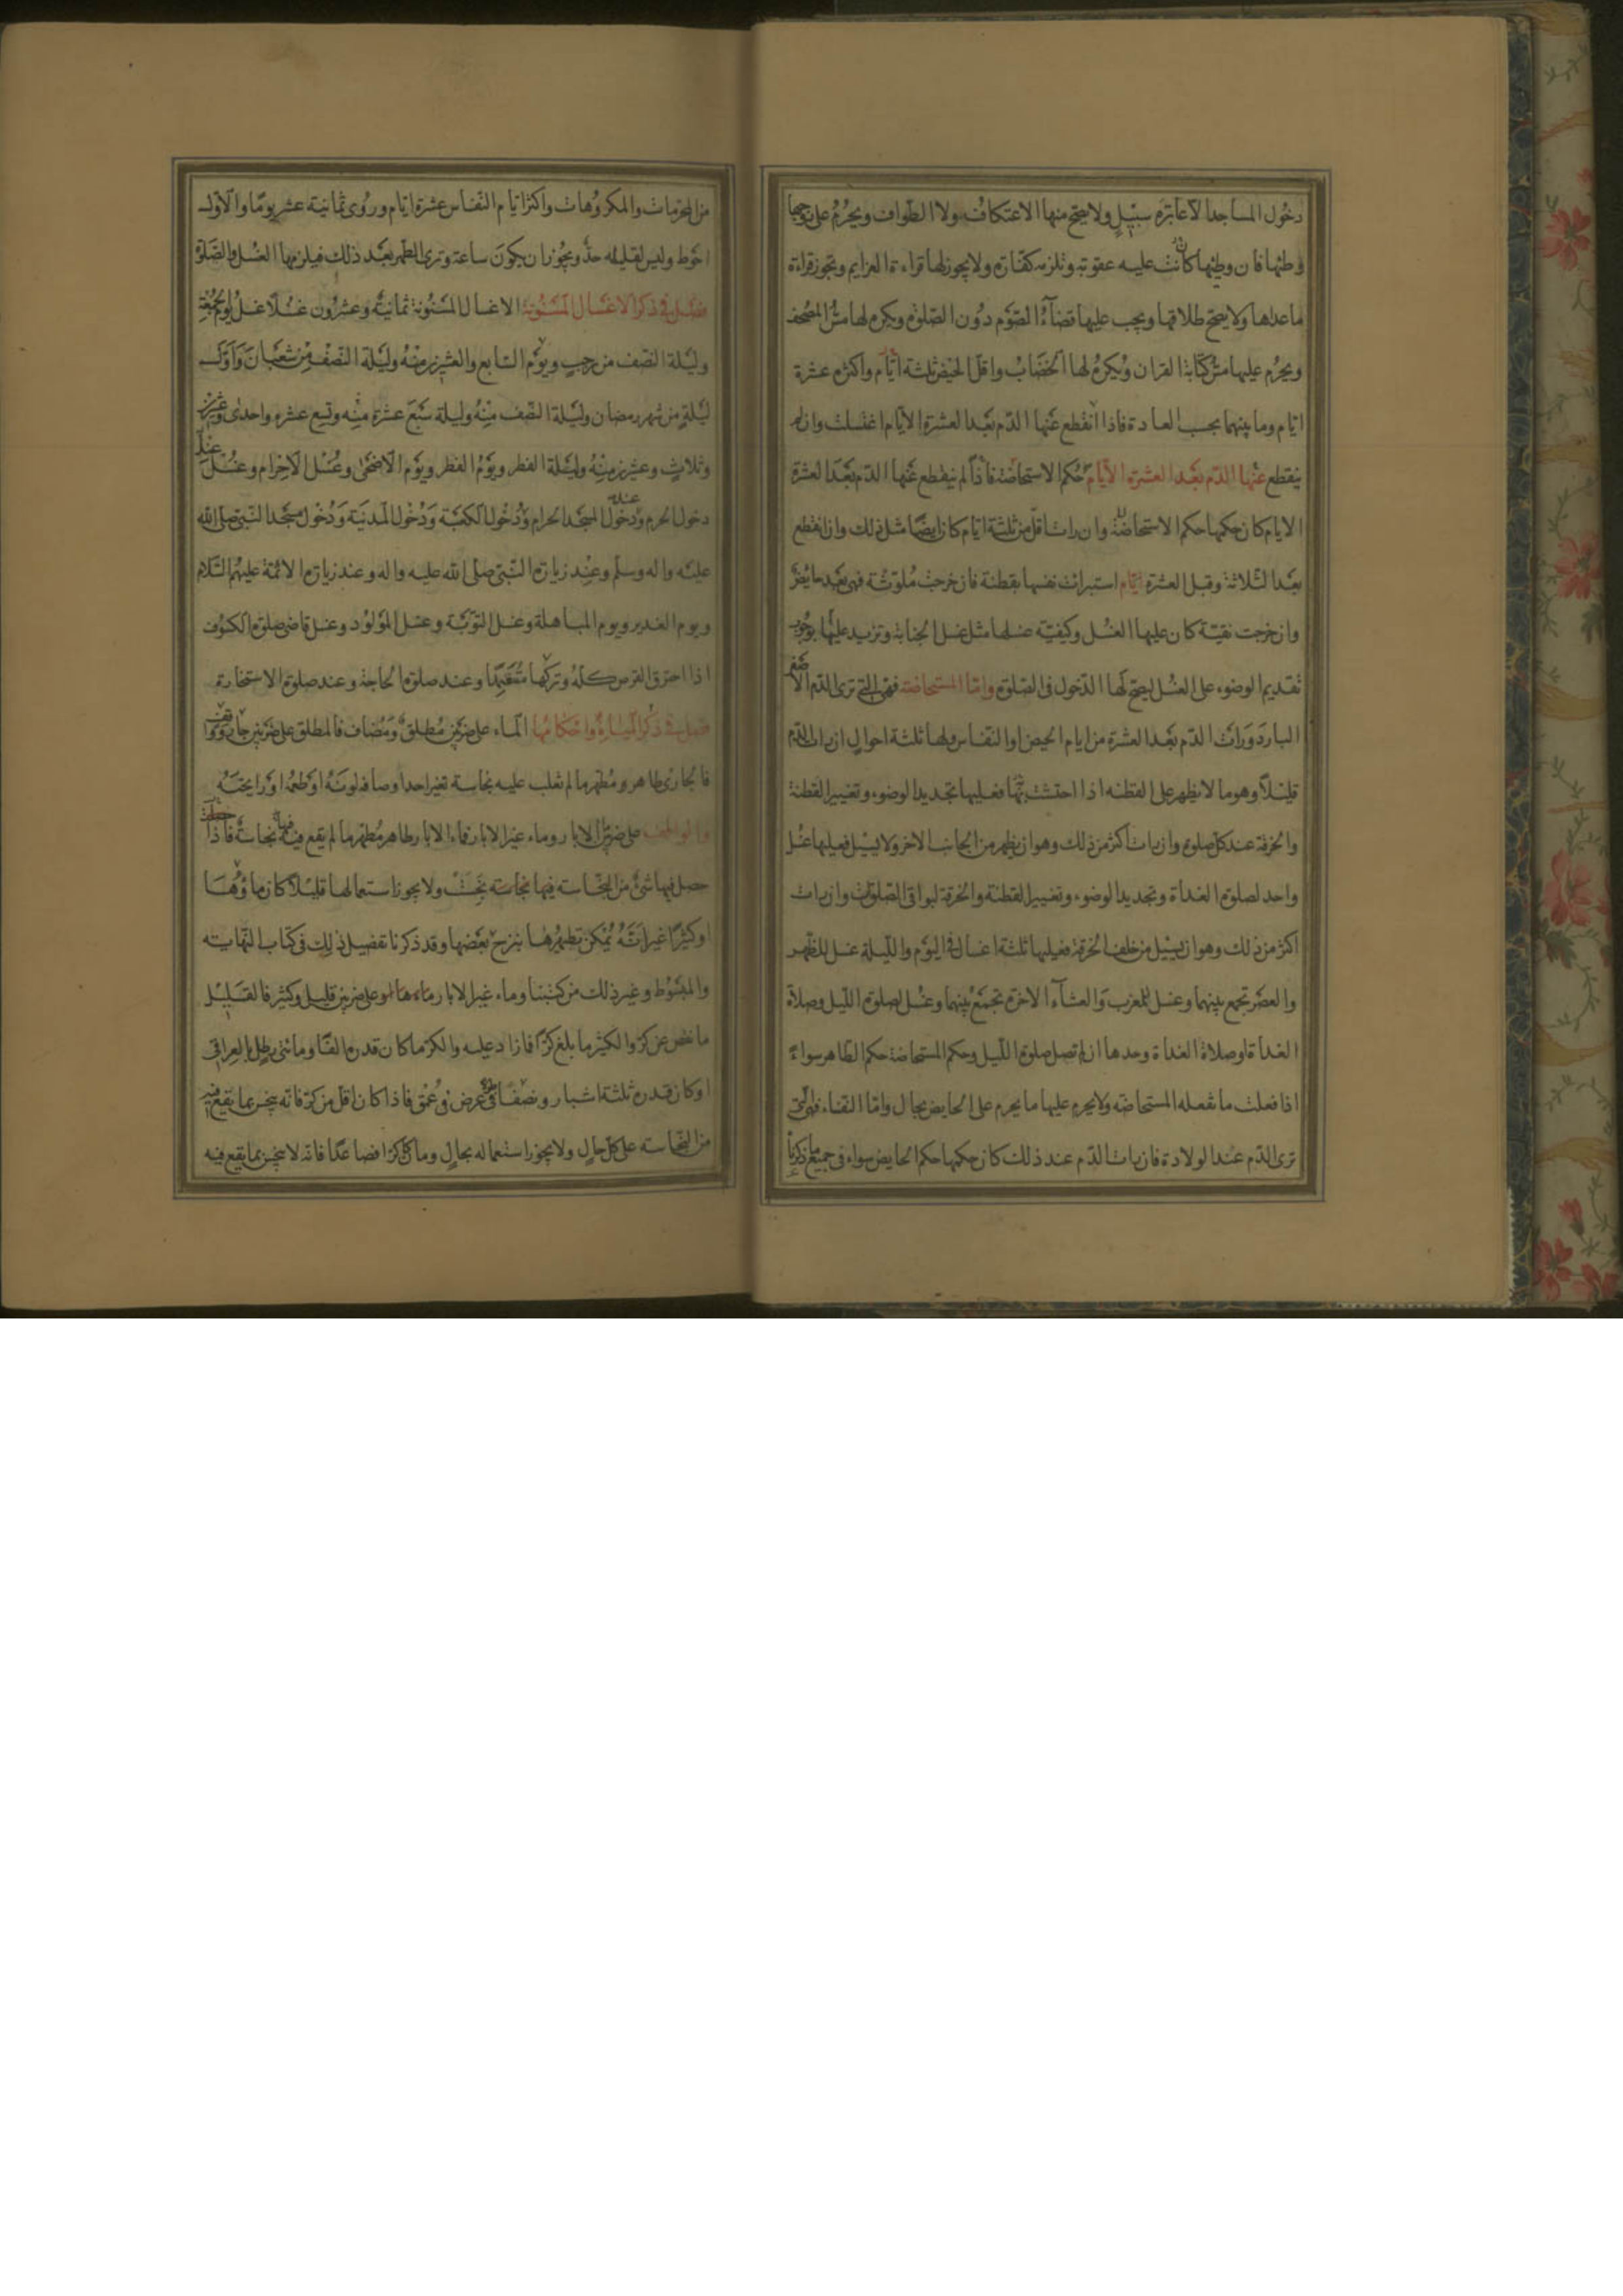 دخول المساجد الا عابرة سبيل ولا يصح منها الاعتكاف ولا الطواف ويحرم على زوجها
وطئها فان وطئها كانت عليه عقوبة وتلزمه كفارة ولا يجوز لها قراءة العزايم ويجوز قراءة
ماعداها ولا يصح طلاقها ويجب عليها قضاء الصوم دون الصلوة ويكره لها مس المصحف
ويحرم عليها مس كتابة القران ويكره لها الخضاب واقل الحيض ثلثة ايام واكثره عشرة
ايام وما بينهما بحسب العادة فاذا انقطع عنها الدم بعد العشرة الايام اغتسلت وان لم
ينقطع عنها الدم بعد العشرة الايام حكم الاستحاضة فاذا لم ينقطع عنها الدم بعد العشرة
الايام كان حكمها حكم الاستحاضة وان رات اقل من ثلثة ايام كان ايضا مثل ذلك وان انقطع
بعد الثلاثة وقبل العشرة ايام استبرات نفسها بقطنة فان خرجت ملوثة فهي بعد حايض
وان خرجت نقية كان عليها الغسل وكيفية غسلها مثل غسل الجنابة وتزيد عليها بوجوب
تقديم الوضوء على الغسل ليصح لها الدخول في الصلوة واما المستحاضة فهي التي ترى الدم الاصفر
البارد ورات الدم بعد العشرة من ايام الحيض او النفاس ولها ثلثة احوال ان رات الدم
قليلا وهو ما لا يظهر على القطنة اذا احتشت بها فعليها تجديد الوضوء وتغيير القطنة
والخرقة عند كل صلوة وان رات اكثر من ذلك وهو ان يظهر من الجانب الاخر ولا يسيل فعليها غسل
واحد لصلوة الغداة وتجديد الوضوء وتغيير القطنة والخرقة لبواقي الصلوات وان رات
اكثر من ذلك وهو ان يسيل من خلف الخرقة فعليها ثلثة اغسال في اليوم والليلة غسل للظهر
والعصر تجمع بينهما وغسل للمغرب والعشاء الاخرة تجمع بينهما وغسل لصلوة الليل وصلاة
الغداة او صلاة الغداة وحدها ان لم تصل صلوة الليل وحكم المستحاضة حكم الطاهر سواء
اذا فعلت ما تفعله المستحاضة ولا يحرم عليها ما يحرم على الحايض بحال واما النفساء فهي التي
ترى الدم عند الولادة فان رات الدم عند ذلك كان حكمها حكم الحايض سواء في جميع ما ذكرناه
من المحرمات والمكروهات واكثر ايام النفاس عشرة ايام وروى ثمانية عشر يوما والاول
احوط وليس لقليله حد ويجوز ان يكون ساعة وترى الطهر بعد ذلك فيلزمها الغسل والصلوة
فصل في ذكر الاغسال المسنونة الاغسال المسنونة ثمانية وعشرون غسلا غسل يوم الجمعة
وليلة النصف من رجب ويوم السابع والعشرين منه وليلة النصف من شعبان واول
ليلة من شهر رمضان وليلة النصف منه وليلة سبع عشرة منه وتسع عشرة واحدى وعشرين
وثلاث وعشرين منه وليلة الفطر ويوم الفطر ويوم الاضحى وغسل الاحرام وغسل عند
دخول الحرم وعند دخول المسجد الحرام ودخول الكعبة ودخول المدينة ودخول مسجد النبي صلى الله
عليه واله وسلم وعند زيارة النبي صلى الله عليه واله وعند زيارة الائمة عليهم السلام
ويوم الغدير ويوم المباهلة وغسل التوبة وغسل المولود وغسل قاضي صلوة الكسوف
اذا احترق القرص كله وتركها متعمدا وعند صلوة الحاجة وعند صلوة الاستخارة
فصل في ذكر المياه واحكامها الماء على ضربين مطلق ومضاف فالمطلق على ضربين جار وواقف
فالجاري طاهر ومطهر ما لم تغلب عليه نجاسة تغير احد اوصافه لونه او طعمه او رايحته
والواقف على ضربين ماء الابار وماء غير الابار فماء الابار طاهر مطهر ما لم يقع فيه نجاسة فاذا حصلت
حصل فيها شئ من النجاسة فيها نجاسة نجست ولا يجوز استعمالها قليلا كان ماؤها
او كثيرا غير انه يمكن تطهيرها بنزح بعضها وقد ذكرنا تفصيل ذلك في كتاب النهاية
والمبسوط وغير ذلك من كتبنا وماء غير الابار على ضربين قليل وكثير فالقليل
ما نقص عن كر والكثير ما بلغ كرا فازاد عليه والكر ما كان قدره الفا ومائتي رطل بالعراقي
او كان قدره ثلثة اشبار ونصفا في عرض في عمق فاذا كان اقل من كر فانه ينجس بما يقع فيه
من النجاسة على كل حال ولا يجوز استعماله بحال وما كان كرا فصاعدا فانه لا ينجس بما يقع فيه